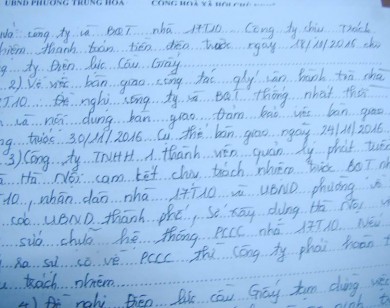 UBND PHƯỜNG TRUNG HOÀ CỘNG HOÀ XÃ HỘI CHỦ
công ty và BQT nhà 17T10. Công ty chịu trách
nhiệm thanh toán tiền điện trước ngày 18/11/2016 cho
ty Điện lực Cầu Giấy.
2) Về việc bàn giao công tác qlý vận hành toà nhà
T10. Đề nghị công ty và BQT thống nhất thời
và nội dung bàn giao đảm bảo việc bàn giao
trước 30/11/2016. Cụ thể bàn giao ngày 24/11/2016.
3) Công ty TNHH 1 thành viên quản lý phát triển
Hà Nội cam kết chịu trách nhiệm trước BQT nh
10, nhân dân nhà 17T10 và UBND phường về
báo cáo UBND thành phố, Sở Xây dựng Hà Nội về
sửa chữa hệ thống PCCC nhà 17T10. Nếu
ra sự cố về PCCC thì Công ty phải hoàn t
trách nhiệm.
4) Đề nghị Điện lực Cầu Giấy tạm dừng việc